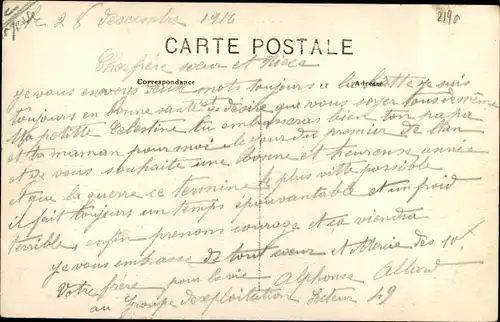 le 28 descembre 1916
2190
CARTE POSTALE
Cher frère sœur et Niece
Correspondance
Adresse
je vous envoys deux mots toujours a la je suis
toujours en bonne santé je désire que vous soyer tous de même
Ma petitte Celestine tu ambrasseras bien ton papa
et ta maman pour moi le jour du premier de l'han
et Je vous souhaite une bonne et heureuse année
et que la guerre ce termine le plus vitte possible
il fait toujours un temps épouvantable et un froid
terrible enfin prenons courage et ça viendra
je vous embrasse de tout cœur et Mercie des 10f
Votre frère pour la vie Alphonse Allard
au Groupe dexploitation Secteur 49